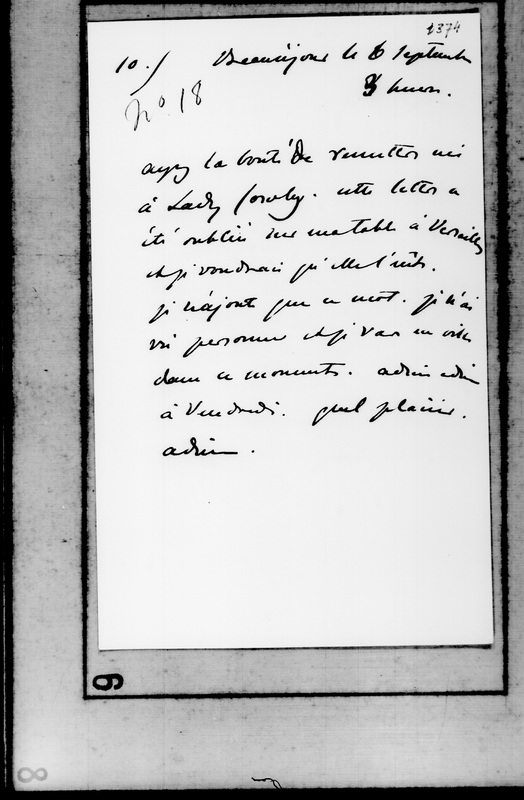 2374
10./ Beauséjour le 6 Septembre
3 heures.
No. 18
ayez la bonté de remettre ceci
à Lady Cowley. cette lettre a
été oubliée sur ma table à Versailles
et je voudrais qu'elle l'eût.
je n'ajoute que ce mot. je n'ai
vu personne et je vais en ville
dans ce moment. adieu adieu
à Vendredi. quel plaisir.
adieu.
9
8